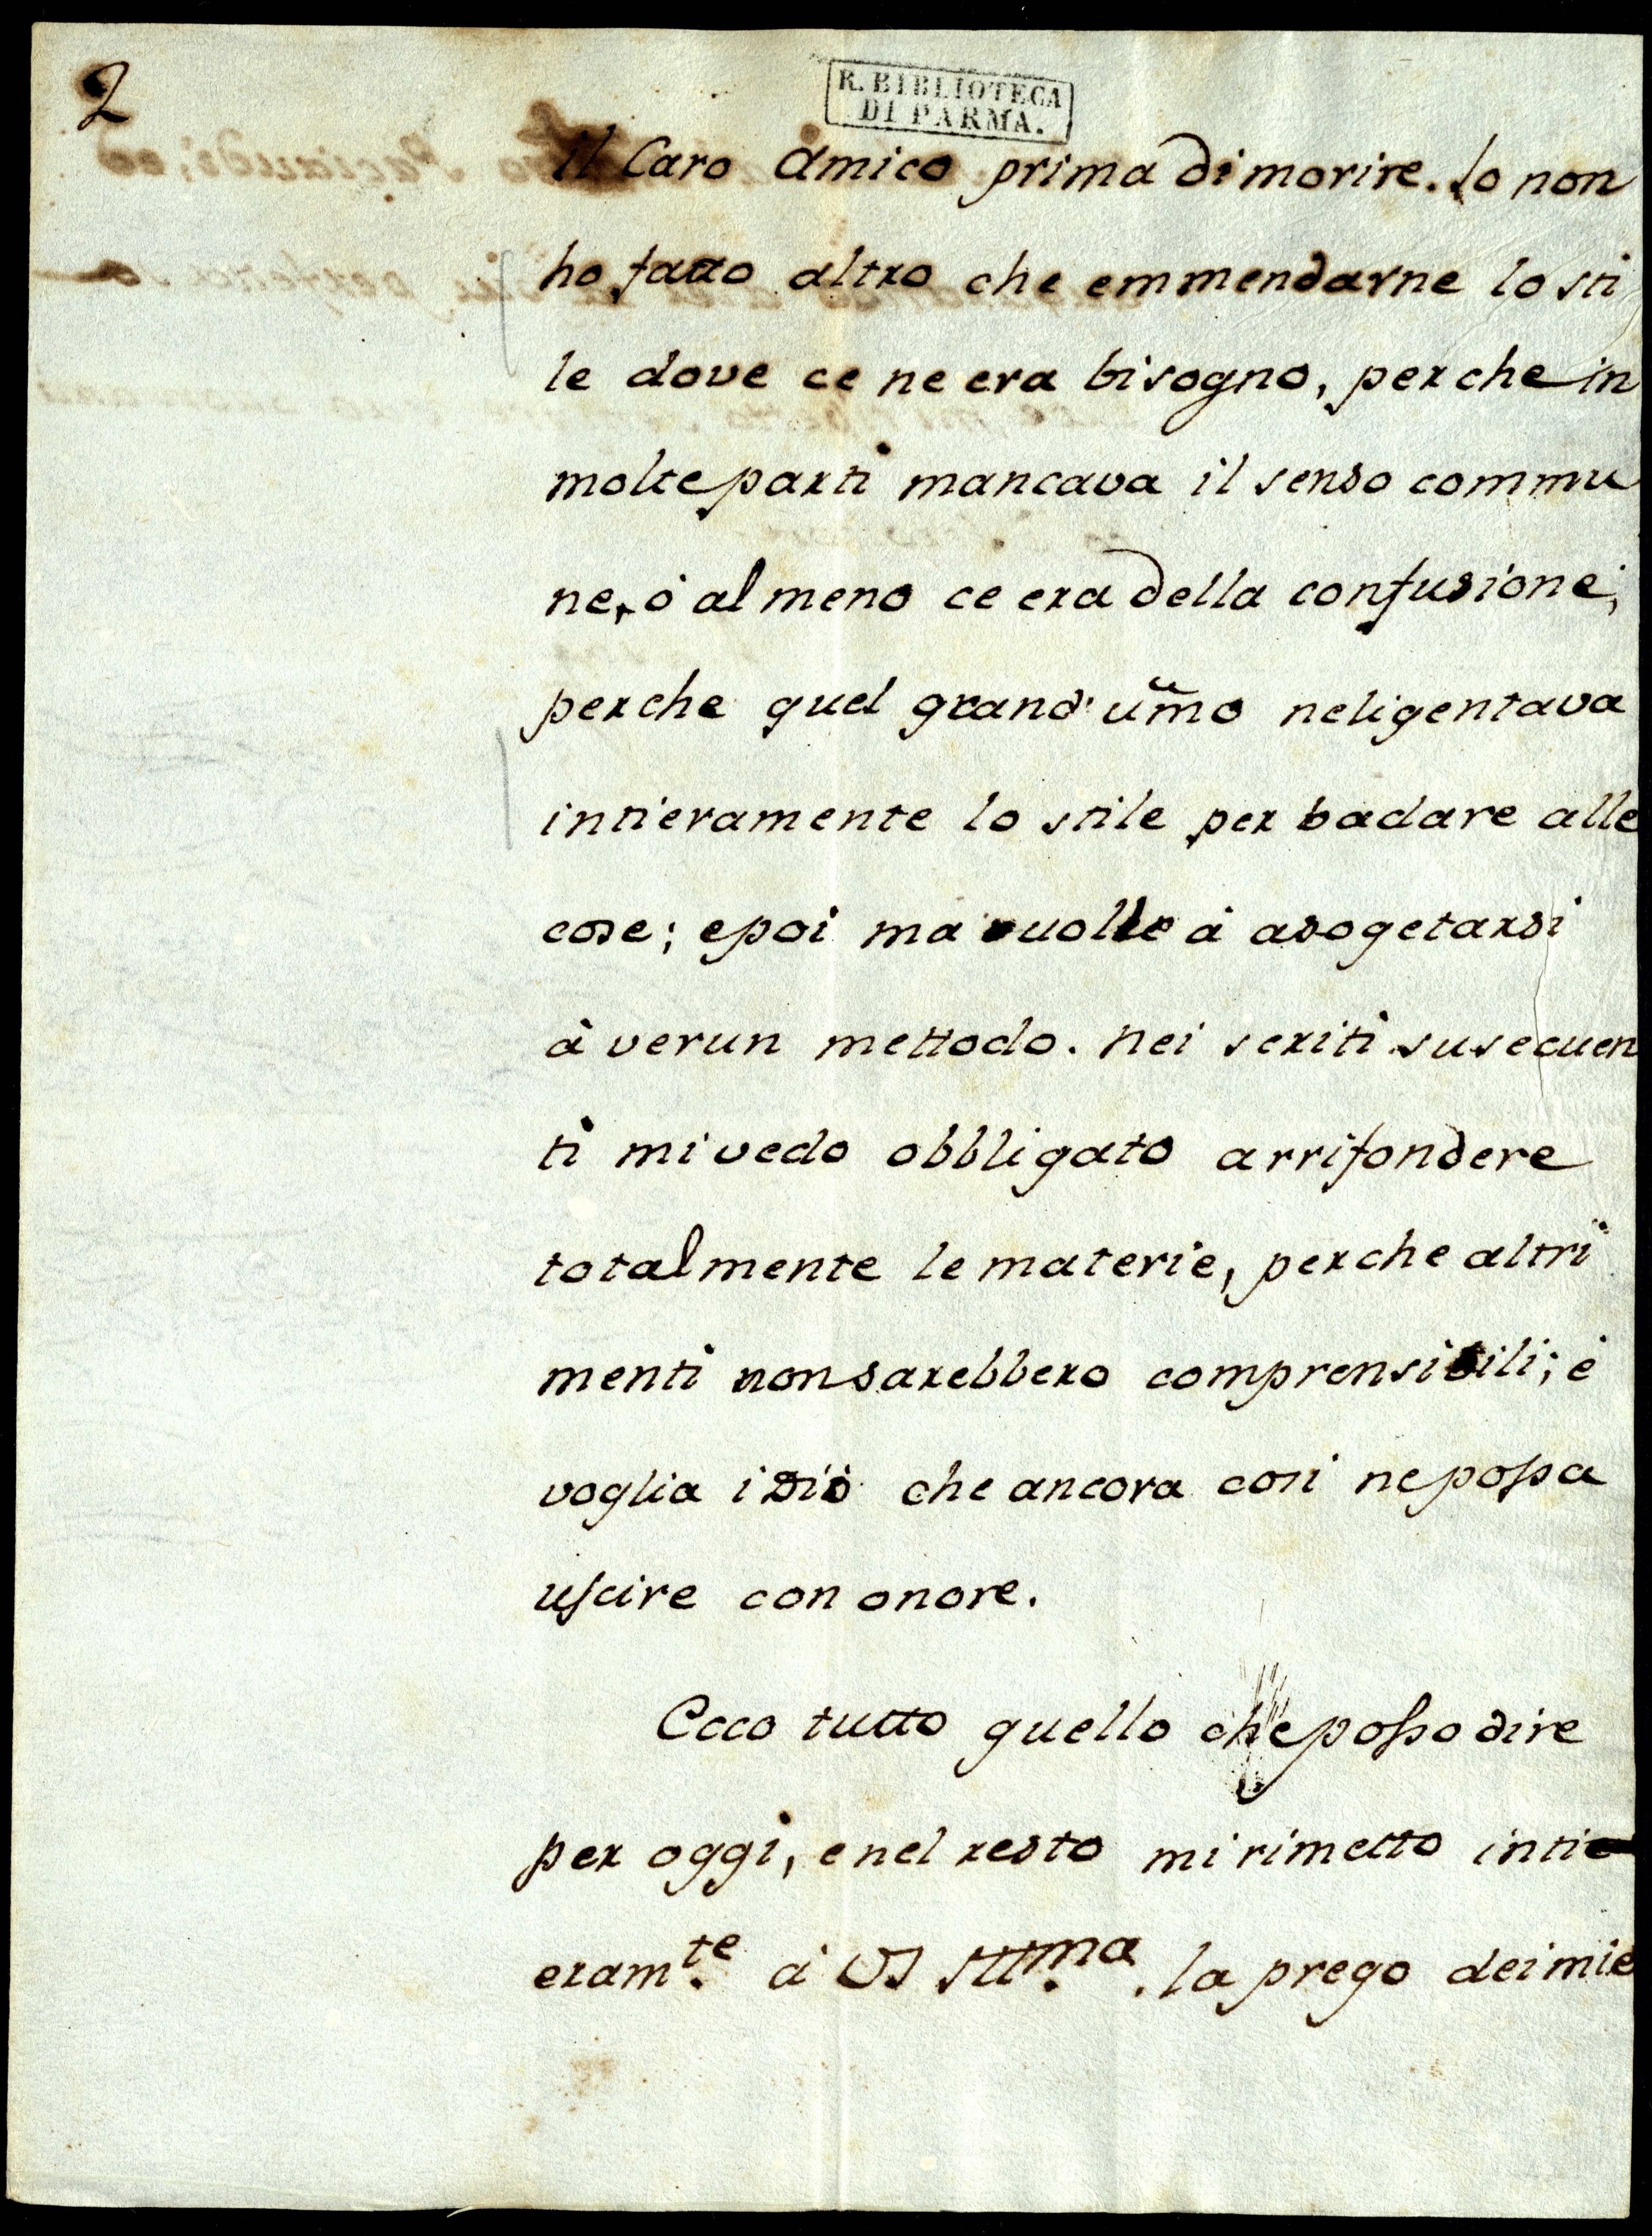 2
R. BIBLIOTECA
DI PARMA.
il Caro Amico prima di morire. Io non
ho fatto altro che emmendarne lo sti
le dove ce ne era bisogno, perche in
molte parti mancava il senso commu
ne, ò almeno ce era della confusione;
perche quel grand' um̃o neligentava
intieramente lo stile per badare alle
cose; e poi ma vuolle à asogetarsi
à verun mettodo. Nei scriti susecuen
ti mi vedo obbligato arrifondere
totalmente le materie, perche altri
menti non sarebbero comprensibili; è
voglia idiò che ancora cosi ne possa
uscire con onore.
Ecco tutto quello che posso dire
per oggi, e nel resto mi rimetto inti
eram.te à VS Ill.ma. la prego dei mie